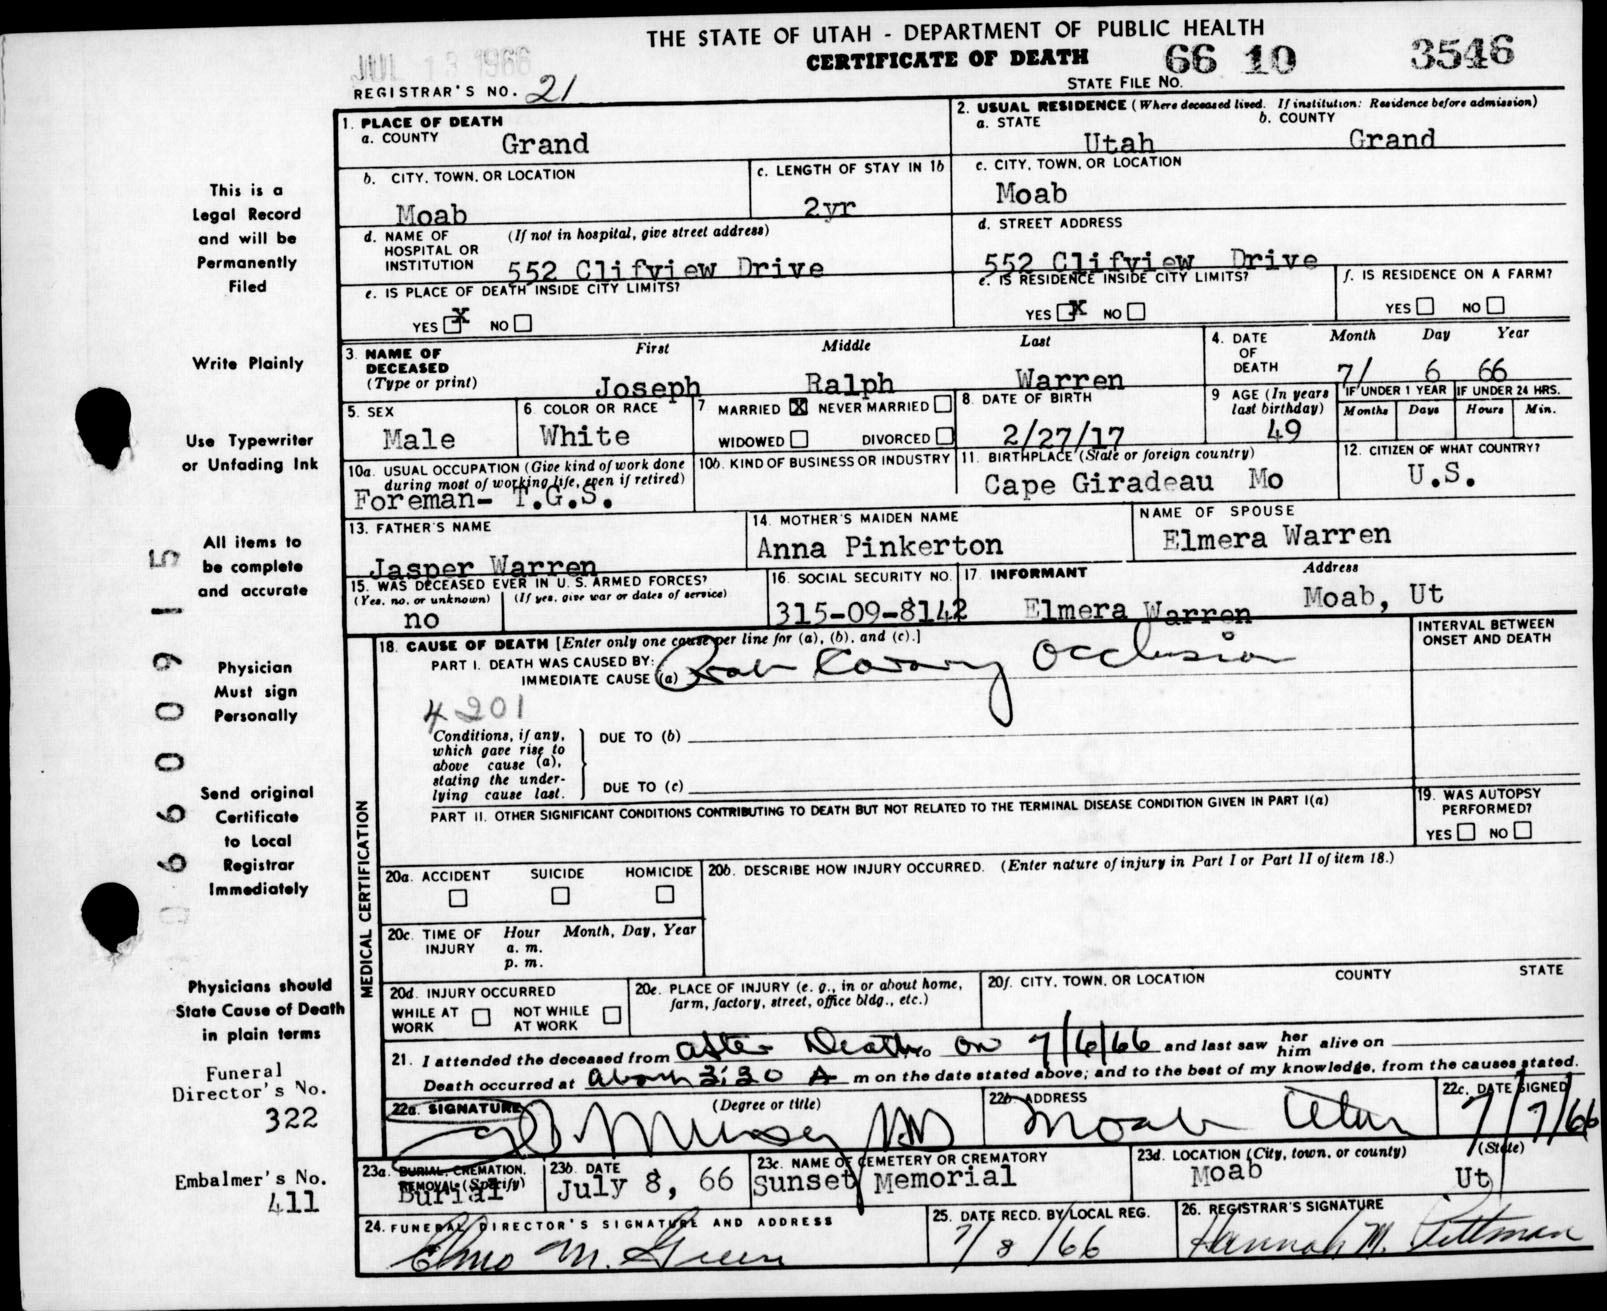 THE STATE OF UTAH - DEPARTMENT OF PUBLIC HEALTH
CERTIFICATE OF DEATH 66 10 3546
JUL 13 1966
STATE FILE NO.
REGISTRAR'S NO. 21
1. PLACE OF DEATH
a. COUNTY Grand
2. USUAL RESIDENCE (Where deceased lived. If institution: Residence before admission)
a. STATE Utah b. COUNTY Grand
b. CITY, TOWN, OR LOCATION Moab
c. LENGTH OF STAY IN 1b 2yr
c. CITY, TOWN, OR LOCATION
Moab
d. NAME OF HOSPITAL OR INSTITUTION (If not in hospital, give street address)
552 Clifview Drive
d. STREET ADDRESS
552 Clifview Drive
e. IS PLACE OF DEATH INSIDE CITY LIMITS?
YES X NO
e. IS RESIDENCE INSIDE CITY LIMITS?
YES X NO
f. IS RESIDENCE ON A FARM?
YES NO
3. NAME OF DECEASED (Type or print)
First Middle Last
Joseph Ralph Warren
4. DATE OF DEATH
Month Day Year
7/ 6 66
5. SEX
Male
6. COLOR OR RACE
White
7 MARRIED X NEVER MARRIED
WIDOWED DIVORCED
8. DATE OF BIRTH
2/27/17
9 AGE (In years last birthday)
49
IF UNDER 1 YEAR
Months Days
IF UNDER 24 HRS.
Hours Min.
10a. USUAL OCCUPATION (Give kind of work done during most of working life, even if retired)
Foreman- T.G.S.
10b. KIND OF BUSINESS OR INDUSTRY
11. BIRTHPLACE (State or foreign country)
Cape Giradeau Mo
12. CITIZEN OF WHAT COUNTRY?
U.S.
13. FATHER'S NAME
Jasper Warren
14. MOTHER'S MAIDEN NAME
Anna Pinkerton
NAME OF SPOUSE
Elmera Warren
15. WAS DECEASED EVER IN U.S. ARMED FORCES?
(Yes, no, or unknown) (If yes, give war or dates of service)
no
16. SOCIAL SECURITY NO.
315-09-8142
17. INFORMANT Address
Elmera Warren Moab, Ut
MEDICAL CERTIFICATION
18. CAUSE OF DEATH [Enter only one cause per line for (a), (b), and (c).]
PART I. DEATH WAS CAUSED BY:
IMMEDIATE CAUSE (a) Occlusion
INTERVAL BETWEEN ONSET AND DEATH
4201
Conditions, if any, which gave rise to above cause (a), stating the underlying cause last.
DUE TO (b)
DUE TO (c)
PART II. OTHER SIGNIFICANT CONDITIONS CONTRIBUTING TO DEATH BUT NOT RELATED TO THE TERMINAL DISEASE CONDITION GIVEN IN PART I(a)
19. WAS AUTOPSY PERFORMED?
YES NO
20a. ACCIDENT SUICIDE HOMICIDE
20b. DESCRIBE HOW INJURY OCCURRED. (Enter nature of injury in Part I or Part II of item 18.)
20c. TIME OF INJURY Hour Month, Day, Year
a. m.
p. m.
20d. INJURY OCCURRED
WHILE AT WORK NOT WHILE AT WORK
20e. PLACE OF INJURY (e. g., in or about home, farm, factory, street, office bldg., etc.)
20f. CITY, TOWN, OR LOCATION COUNTY STATE
21. I attended the deceased from after Death to on 7/6/66 and last saw her him alive on
Death occurred at About 3:30 A m on the date stated above; and to the best of my knowledge, from the causes stated.
22a. SIGNATURE (Degree or title)
MD
22b. ADDRESS
Moab Utah
22c. DATE SIGNED
7/7/66
23a. BURIAL, CREMATION, REMOVAL (Specify)
Burial
23b. DATE
July 8, 66
23c. NAME OF CEMETERY OR CREMATORY
Sunset Memorial
23d. LOCATION (City, town, or county) (State)
Moab Ut
24. FUNERAL DIRECTOR'S SIGNATURE AND ADDRESS
Elmo M. Green
25. DATE RECD. BY LOCAL REG.
7/8/66
26. REGISTRAR'S SIGNATURE
Hannah M. Pittman
This is a
Legal Record
and will be
Permanently
Filed
Write Plainly
Use Typewriter
or Unfading Ink
All items to
be complete
and accurate
Physician
Must sign
Personally
Send original
Certificate
to Local
Registrar
Immediately
Physicians should
State Cause of Death
in plain terms
Funeral
Director's No.
322
Embalmer's No.
411